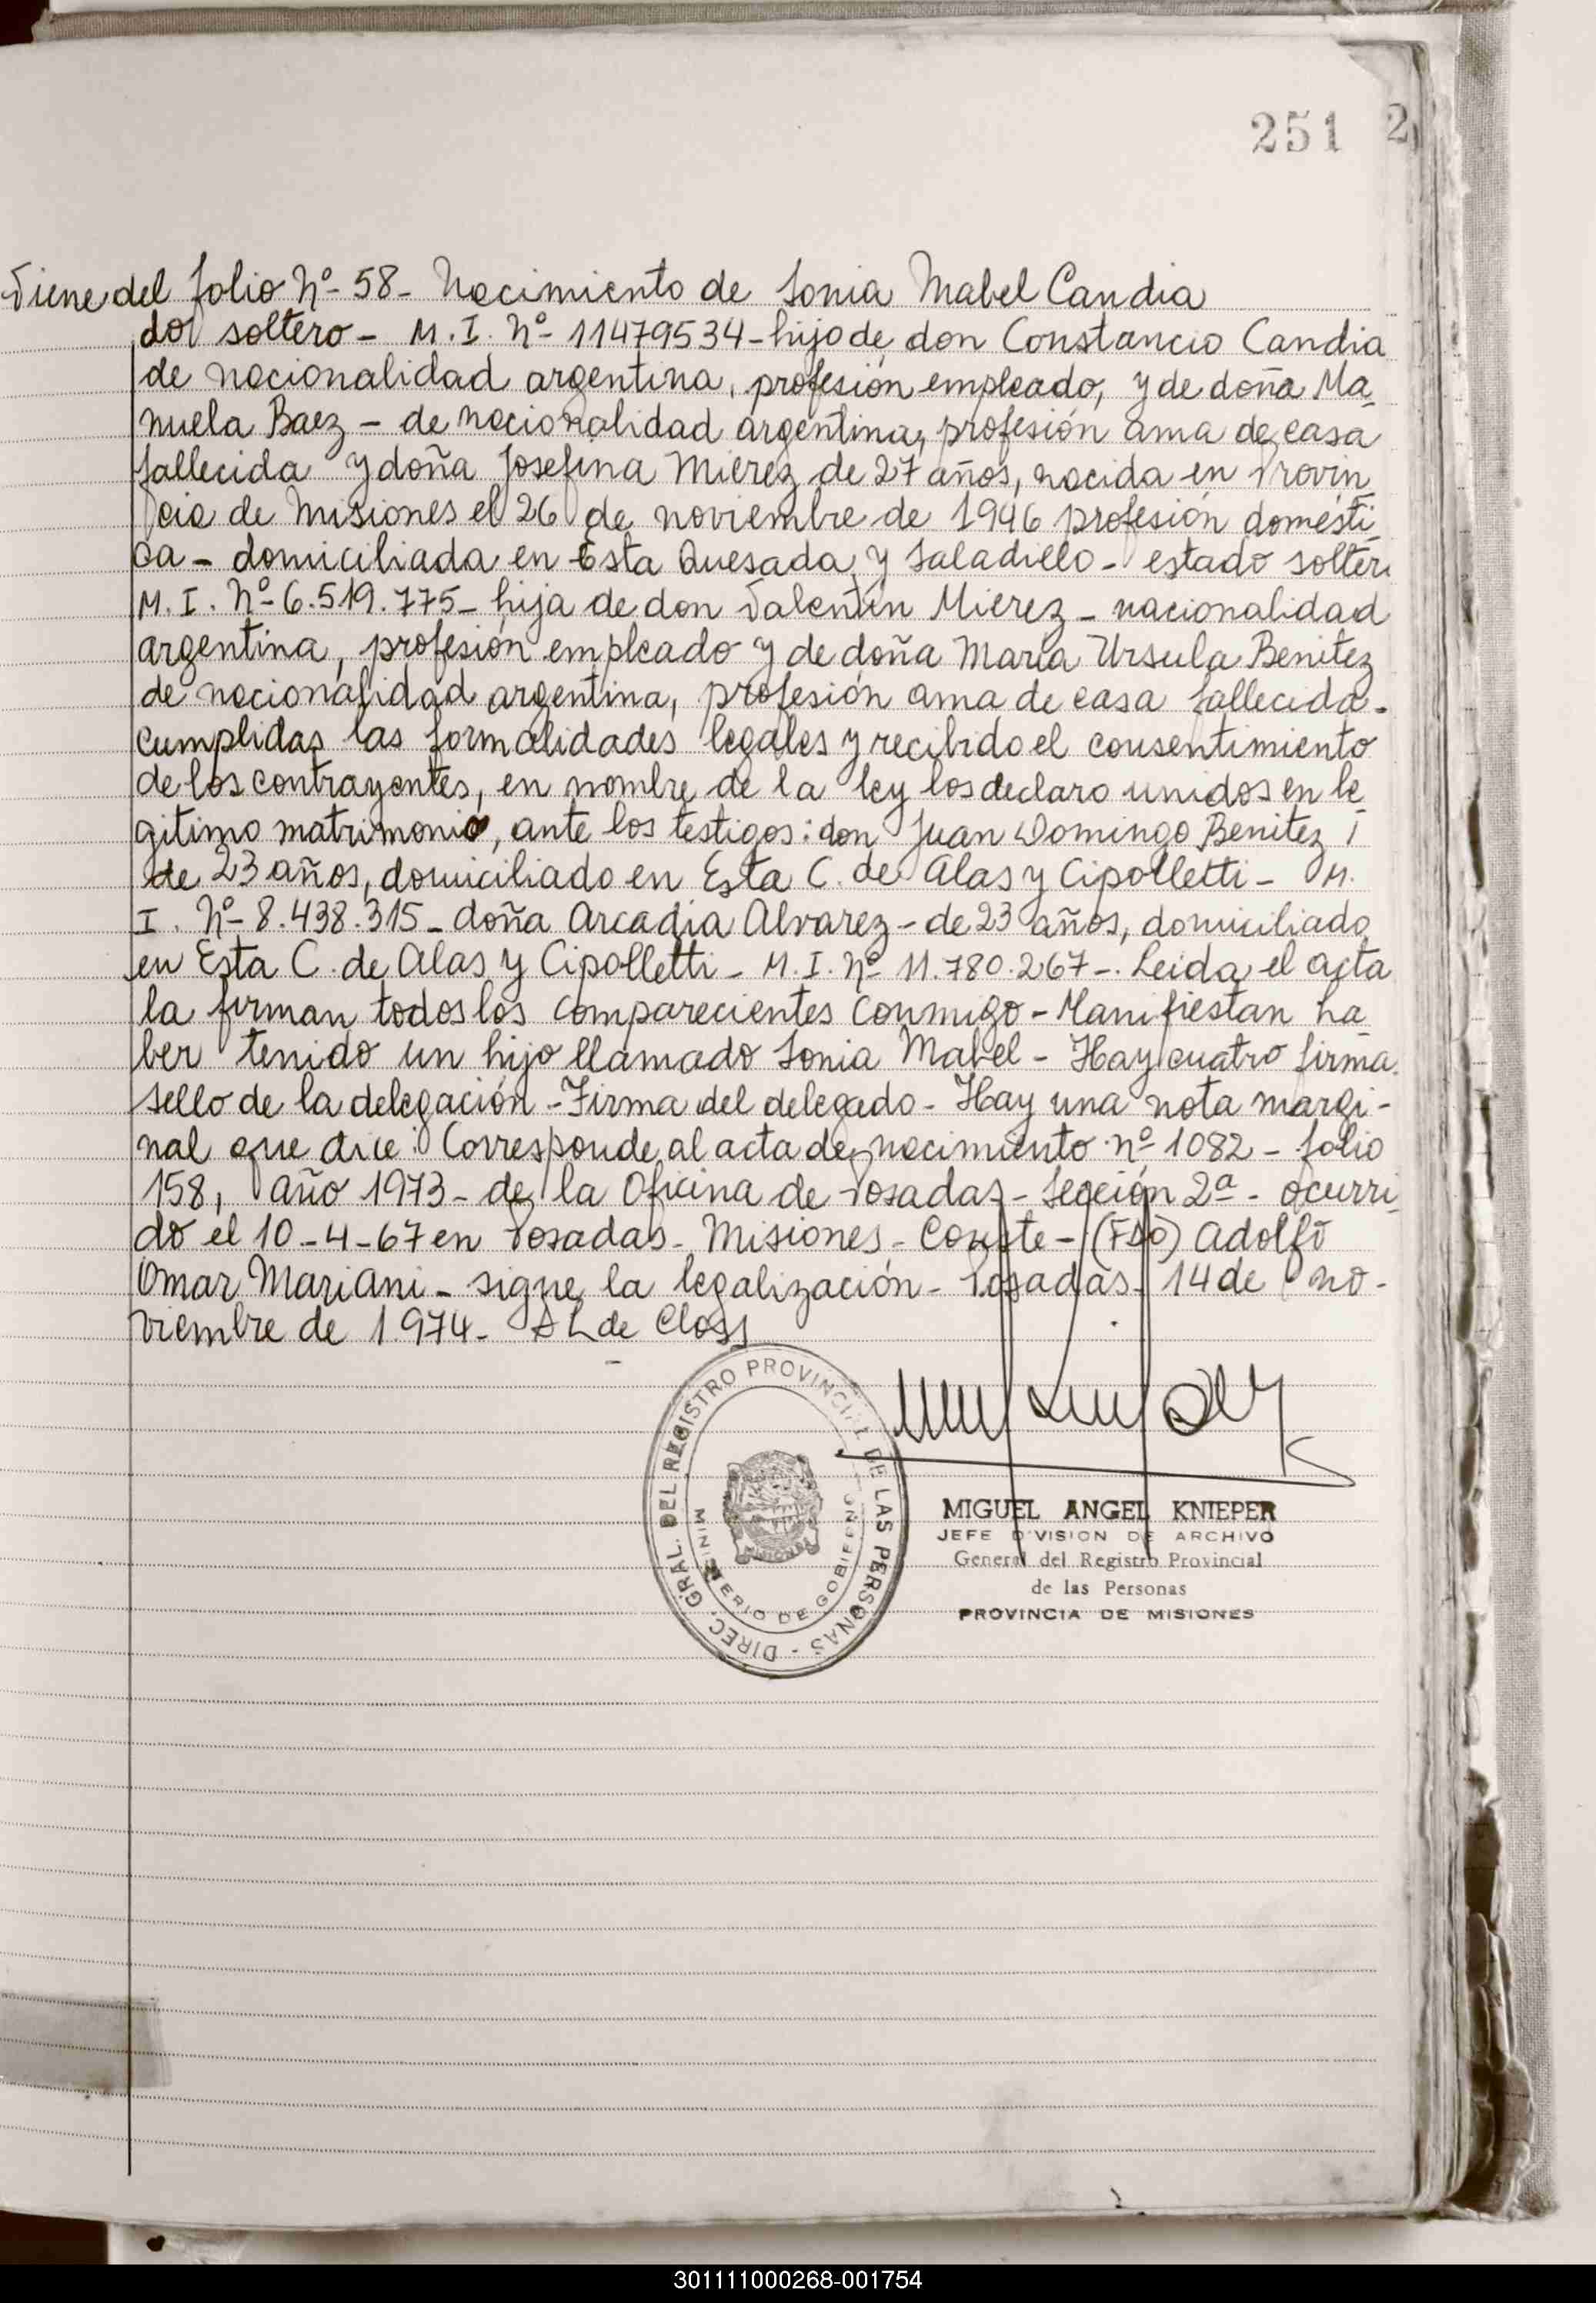 251 2
Viene del folio Nº 58 - Nacimiento de Sonia Mabel Candia
do soltero - M. I. Nº 11479534 - hijo de don Constancio Candia
de nacionalidad argentina, profesión empleado, y de doña Ma_
nuela Baez - de nacionalidad argentina, profesión ama de casa
fallecida y doña Josefina Mierez de 27 años, nacida en Provin_
cia de Misiones el 26 de noviembre de 1946 profesión domésti_
ca - domiciliada en Esta Quesada y Saladillo - estado solter
M. I. Nº 6.519.775 - hija de don Valentín Mierez - nacionalidad
argentina, profesión empleado y de doña María Ursula Benitez
de nacionalidad argentina, profesión ama de casa fallecida -
cumplidas las formalidades legales y recibido el consentimiento
de los contrayentes, en nombre de la ley los declaro unidos en le_
gitimo matrimonio, ante los testigos: don Juan Domingo Benitez
de 23 años, domiciliado en Esta C. de Alas y Cipolletti - M.
I. Nº 8.438.315 - doña Arcadia Alvarez - de 23 años, domiciliado
en Esta C. de Alas y Cipolletti - M. I. Nº 11.780.267 -. Leida el acta
la firman todos los comparecientes conmigo - Manifiestan ha_
ber tenido un hijo llamado Sonia Mabel - Hay cuatro firma
sello de la delegación - Firma del delegado - Hay una nota margi-
nal que dice: Corresponde al acta de nacimiento nº 1082 - folio
158, año 1973 - de la Oficina de Posadas - Sección 2ª - ocurri_
do el 10-4-67 en Posadas - Misiones - Conste - (FDO) Adolfo
Omar Mariani - sigue la legalización - Posadas - 14 de no-
viembre de 1.974 - A L de Closs
DIREC. GRAL. DEL REGISTRO PROVINCIAL DE LAS PERSONAS -
MINISTERIO DE GOBIERNO
MIGUEL ANGEL KNIEPER
JEFE DIVISION DE ARCHIVO
General del Registro Provincial
de las Personas
PROVINCIA DE MISIONES
301111000268-001754